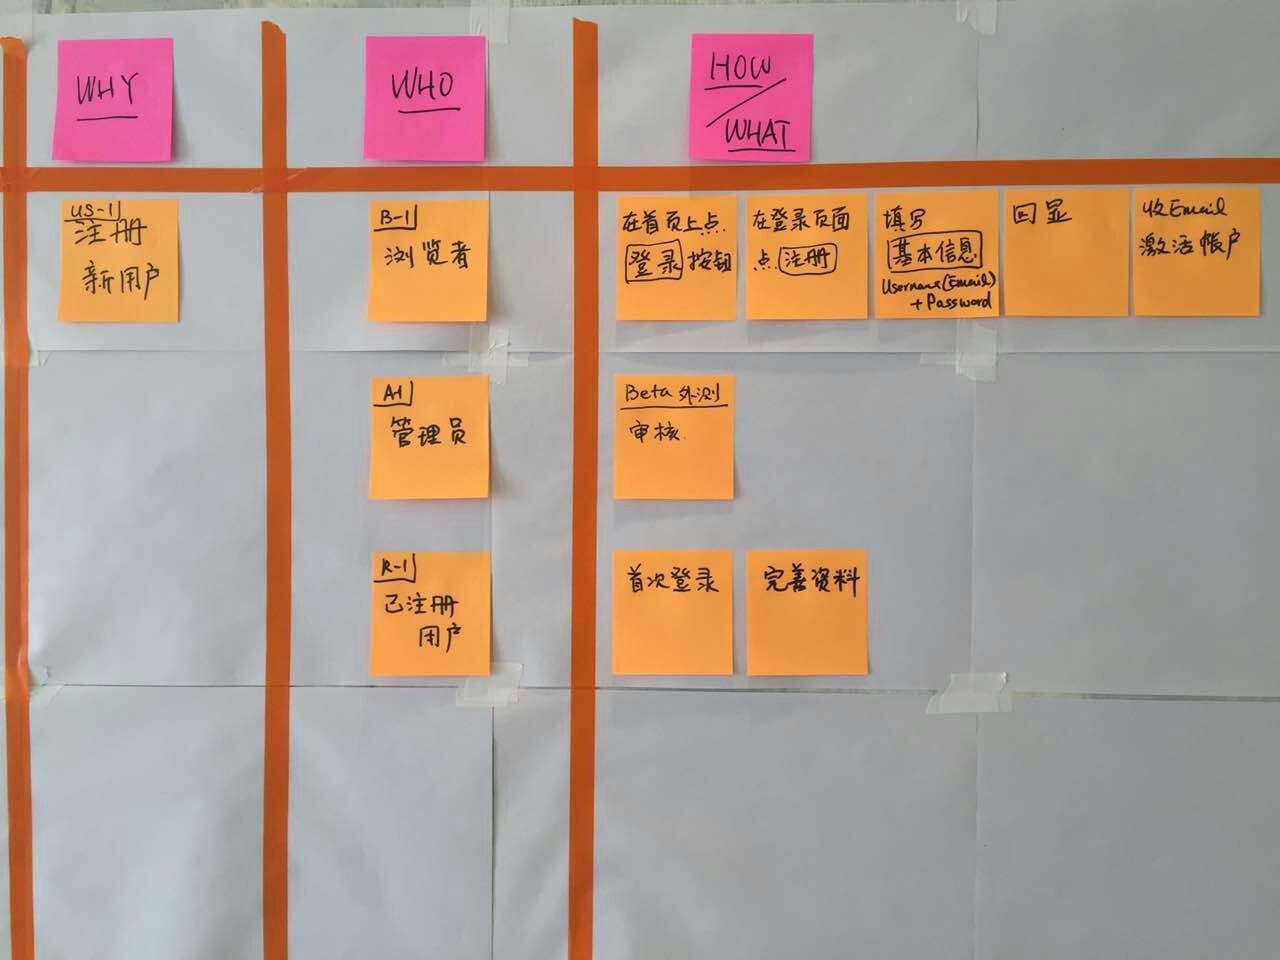 WHY
WHO
HOW
WHAT
US-1
注册
新用户
B-1
浏览者
在首页上点
登录按钮
在登录页面
点注册
填写
基本信息
Username(Email)
+Password
回显
收Email
激活帐户
A-1
管理员
Beta外测
审核
R-1
已注册
用户
首次登录
完善资料